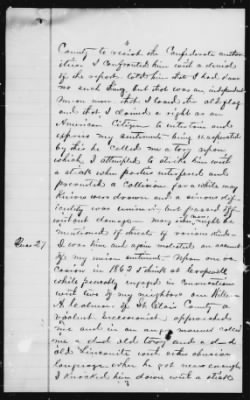 County to resist the Confederate author
ities I confronted him with a denial
of the report told him that I had done
no such thing, but that was an independent
Union man that I loved the old flag
and that I claimed a right as an
American Citizen to entertain and
express my sentiments being exasperated
by this he called me a tory upon
which I attempted to strike him with
a stick when parties interfered and
prevented a collision for a while may
and a serious dif-
ficulty was imminent but passed off
without damage - many might be
mentioned of
Ques 27 I was then and again molested on account
of my union sentiments - Upon one oc
casion in 1863 I think at
while peaceably engaged in conversation
with two of my neighbors one
A. of St Clair County a
violent secessionist approached
me and in an angry manner called
me a d--d old tory and a d--d
old Lincolnite with other abusive
language when he got near enough
I knocked him down with a stick